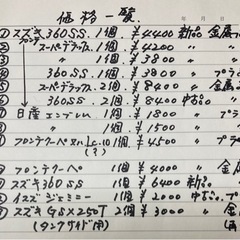 価格一覧
年 月 日
①スズキ 360SS. 1個. ¥4400 新品 金属
フロンテ
② スーパーデラックス. 1個 ¥4200 〃
③ 〃 1個 ¥3800 〃
④ 360SS. 1個. ¥3800 〃 プラ
⑤ スーパーデラックス. 2個 ¥8400 〃 金属
⑥ 360SS. 2個 ¥8400 中古品. 〃
⑦日産エンブレム 1個 ¥1800 〃 プラ
⑧ 〃 1個 ¥1500 〃
⑨フロンテクーペ 1個 ¥4500 〃 プラ
(?)
フロンテクーペ 1個 ¥4000 〃 金
スズキ360SS 1個 ¥6400 新品.
イスズジェミニ 1個 ¥2000 中古品. プ
スズキGSX250T 2個 ¥3000 〃 金
(タンクサイド用)